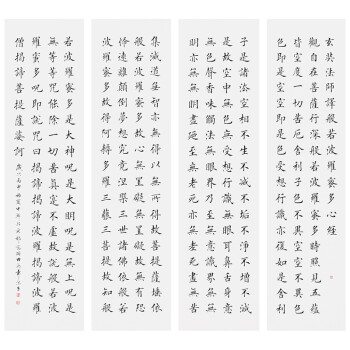 玄奘法師譯般若波羅蜜多心經
觀自在菩薩行深般若波羅蜜多時照見五蘊
皆空度一切苦厄舍利子色不異空空不異色
色即是空空即是色受想行識亦復如是舍利
子是諸法空相不生不滅不垢不淨不增不減
是故空中無色無受想行識無眼耳鼻舌身意
無色聲香味觸法無眼界乃至無意識界無無
明亦無無明盡乃至無老死亦無老死盡無苦
集滅道無智亦無得以無所得故菩提薩埵依
般若波羅蜜多故心無罣礙無罣礙故無有恐
怖遠離顛倒夢想究竟涅槃三世諸佛依般若
波羅蜜多故得阿耨多羅三藐三菩提故知般
若波羅蜜多是大神咒是大明咒是無上咒是
無等等咒能除一切苦真實不虛故說般若波
羅蜜多咒即說咒曰揭諦揭諦波羅揭諦波羅
僧揭諦菩提薩婆訶